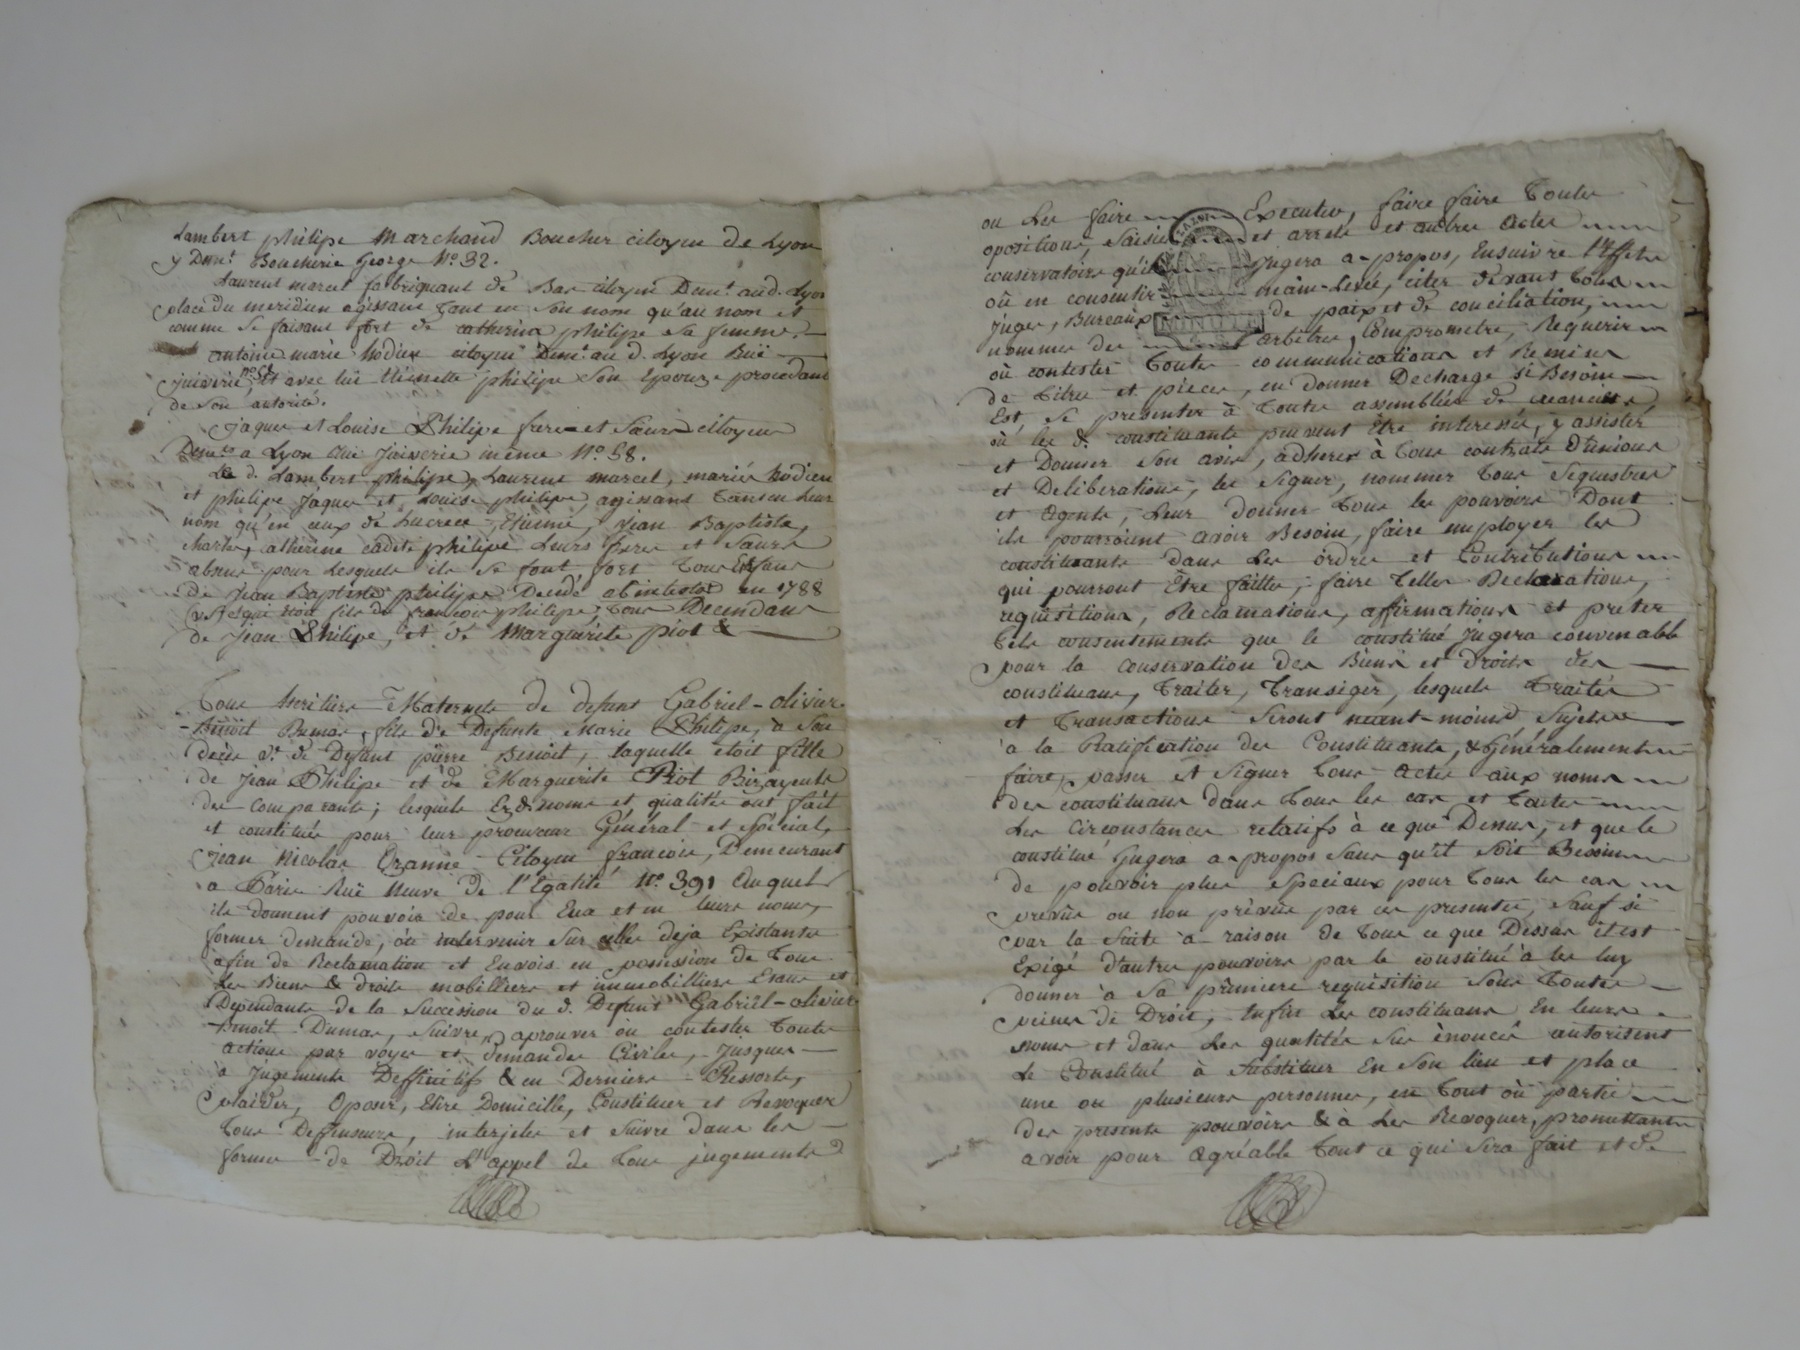 Lambert philipe Marchand Boucher citoyen de Lyon
y Demt. Boucherie George No. 32.
Laurent marcel fabriquant de Bas citoyen Demt. aud. Lyon
place du meridien agissant tant en son nom qu'au nom et
comme se faisant fort de catherine philipe sa femme.
antoine marie hodieu citoyen Demt. au d. Lyon Ruë
juiverie no 58, et avec lui philipe son Epouze procedant
de son autorité.
Jaques et Louise Philipe frere et Sœur citoyens
Demts. a Lyon Rue Juiverie même No. 58.
Le d. Lambert philipe, Laurent marcel, marie hodieu
et philipe Jaques et Louise philipe, agissant tant en leur
nom qu'en ceux de Lucrece, Etienne, Jean Baptiste,
charles, catherine cadete philipe Leurs freres et Sœurs
absens pour lesquels ils se font fort tous Enfans
de Jean Baptiste philipe Decedé abintestat en 1788
lequel etoit fils de francois philipe tous Decendans
de Jean Philipe, et de Marguerite piot &
Tous heritiers Maternels de defunt Gabriel-olivier
Benoit Dumas, fils de Defunte Marie Philipe, à son
decès Ve. de Defunt pierre Benoit, laquelle étoit fille
de Jean Philipe et de Marguerite Piot Bizayeuls
des comparants; lesquels Ez d. noms et qualités ont fait
et constitué pour leur procureur Général et spécial,
Jean Nicolas Ozanne Citoyen francois, Demeurant
a Paris Ruë Neuve de l'Egalité No. 391 Auquel
ils donnent pouvoir de pour Eux et en leurs noms,
former demande, ou intervenir sur celles deja Existantes
afin de Reclamation et Envois en possession de tous
Les Biens & droits mobilliers et immobilliers Exans et
Dependants de la Succession du d. Defunt Gabriel-olivier
Benoit Dumas, suivre, aprouver ou contester toutes
actions par voyes et demandes Civiles, jusques
à Jugements Deffinitifs & en Derniers Ressorts,
plaider, Oposer, Elire Domicille, Constituer et Revoquer
tous Deffenseurs, interjeter et suivre dans les
formes de Droit L'appel de tous jugements
ou Les faire Executer, faire faire toutes
opositions, saisies et arrets et autres actes
conservatoires qu'il jugera a-propos, Ensuivre l'Effet
ou en consentir main-Levée, citer devant tous
Juges, Bureaux de paix et de conciliation,
MINUTE
nommer des arbitres, Comprometre, Requerir
ou contester toutes communications et Remises
de titres et pieces, en donner Decharge si Besoin
Est, se presenter à toutes assemblées de creanciers,
où les d. constituants peuvent être interessés, y assister
et Donner son avis, adherer à tous contrats d'unions
et Deliberations, les signer, nommer tous sequestres
et agents, Leur donner tous les pouvoirs Dont
ils pourroient avoir Besoin, faire employer les
constituants dans Les ordres et Contributions
qui pourront Etre faittes, faire telles Declarations,
requisitions, Reclamations, affirmations et preter
tels consentements que le constitué jugera convenable
pour la conservation des Biens et droits des
constituans, traiter, transiger, lesquels traités
et transactions seront neant-moins sujets
à la Ratification des Constituants, & généralement
faire, passer et signer tous actes aux noms
des constituans dans tous les cas et toutes
Les circonstances relatifs à ce que Dessus, et que le
constitué Jugera a-propos sans qu'il soit Besoin
de pouvoir plus speciaux pour tous les cas
prevûs ou non prévûs par ces presentes, sauf si
par la suite à raison de tous ce que Dessus il est
Exigé d'autres pouvoirs par le constitué à les luy
donner à sa premiere requisition sous toutes
peines de Droit, Enfin Les constituans En leurs
noms et dans les qualités sus énoncés autorisent
Le Constitué à substituer En son lieu et place
une ou plusieurs personnes, en tout ou partie
des presents pouvoirs & à Les Revoquer, promettants
avoir pour agréable tout ce qui sera fait et de